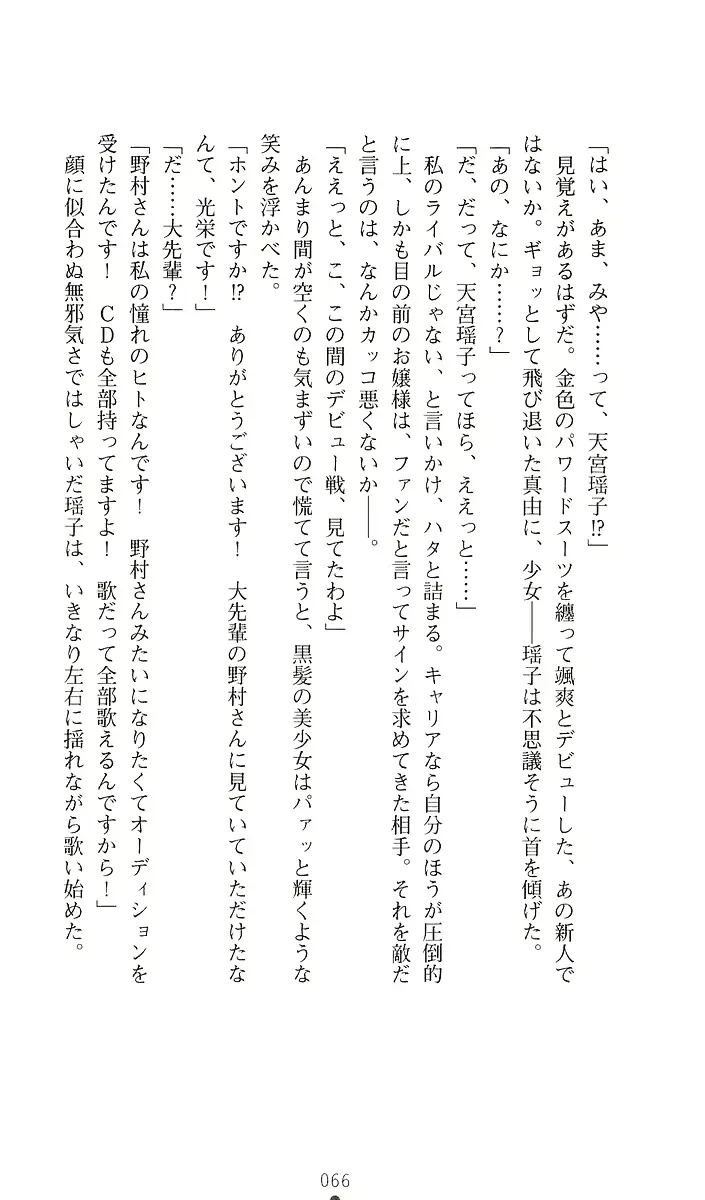 「はい、あま、みや……って、天宮瑶子⁉」
　見覚えがあるはずだ。金色のパワードスーツを纏って颯爽とデビューした、あの新人で
はないか。ギョッとして飛び退いた真由に、少女――瑶子は不思議そうに首を傾げた。
「あの、なにか……？」
「だ、だって、天宮瑶子ってほら、ええっと……」
　私のライバルじゃない、と言いかけ、ハタと詰まる。キャリアなら自分のほうが圧倒的
に上、しかも目の前のお嬢様は、ファンだと言ってサインを求めてきた相手。それを敵だ
と言うのは、なんかカッコ悪くないか――。
「ええっと、こ、この間のデビュー戦、見てたわよ」
　あんまり間が空くのも気まずいので慌てて言うと、黒髪の美少女はパァッと輝くような
笑みを浮かべた。
「ホントですか⁉　ありがとうございます！　大先輩の野村さんに見ていていただけたな
んて、光栄です！」
「だ……大先輩？」
「野村さんは私の憧れのヒトなんです！　野村さんみたいになりたくてオーディションを
受けたんです！　ＣＤも全部持ってますよ！　歌だって全部歌えるんですから！」
　顔に似合わぬ無邪気さではしゃいだ瑶子は、いきなり左右に揺れながら歌い始めた。
066